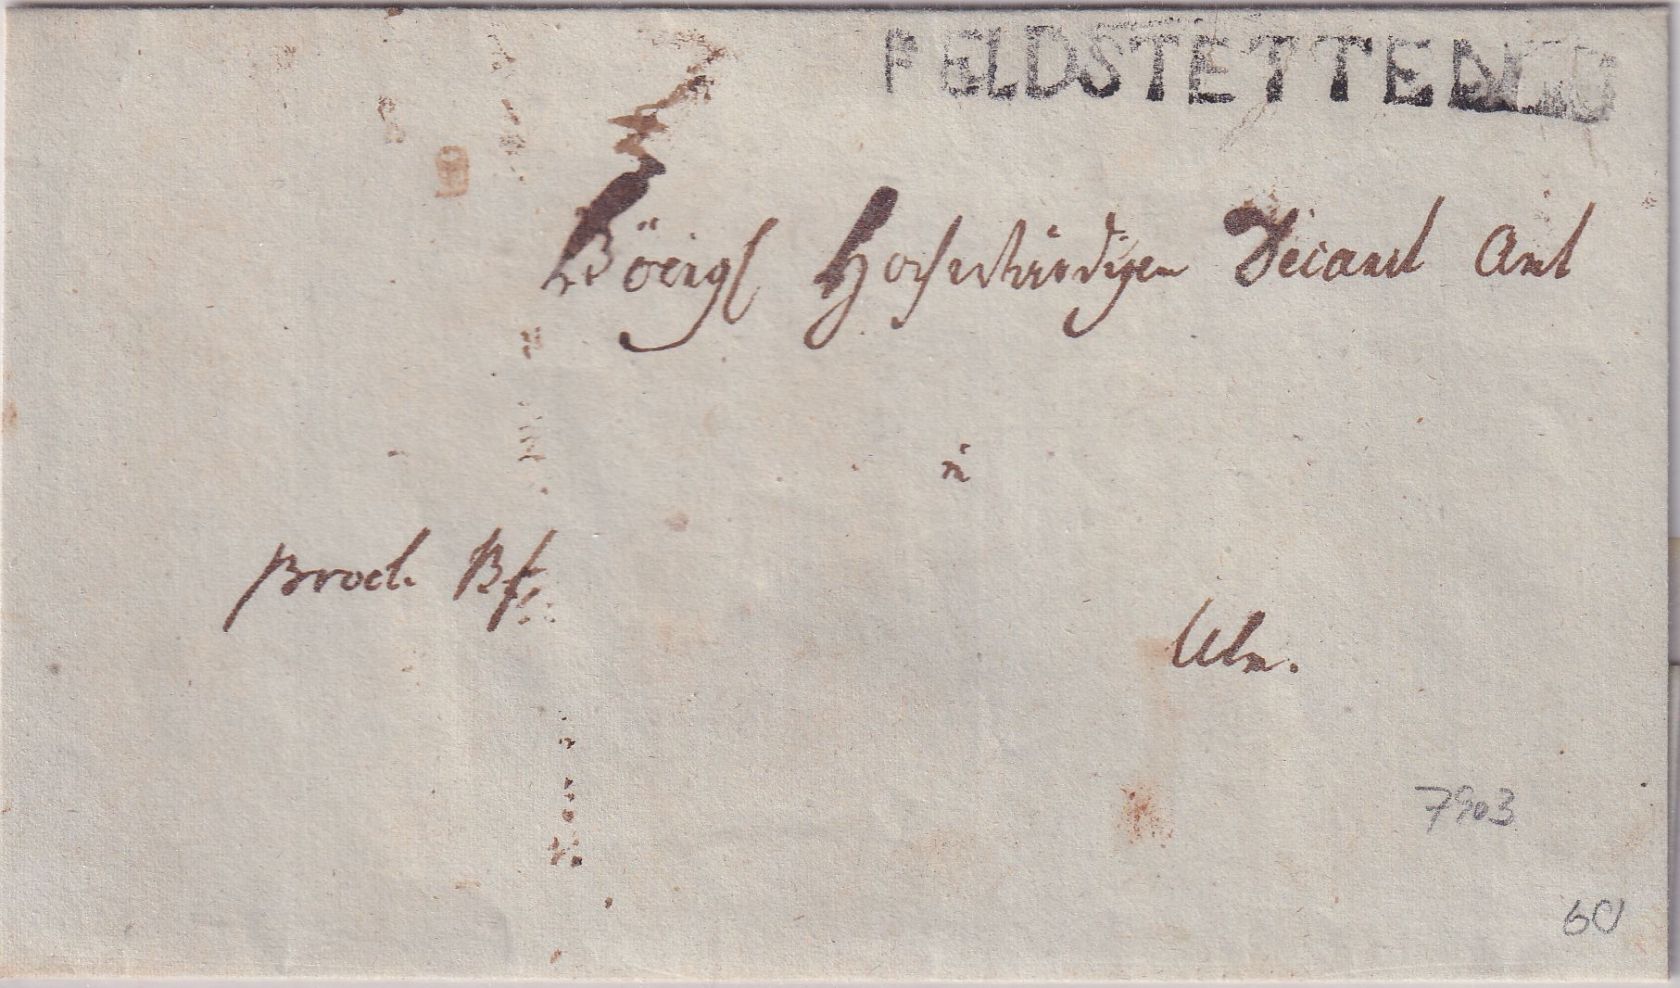 FELDSTETTEN
Königl Hochwürdigen Decanat Amt
in
Ulm.
7903
60